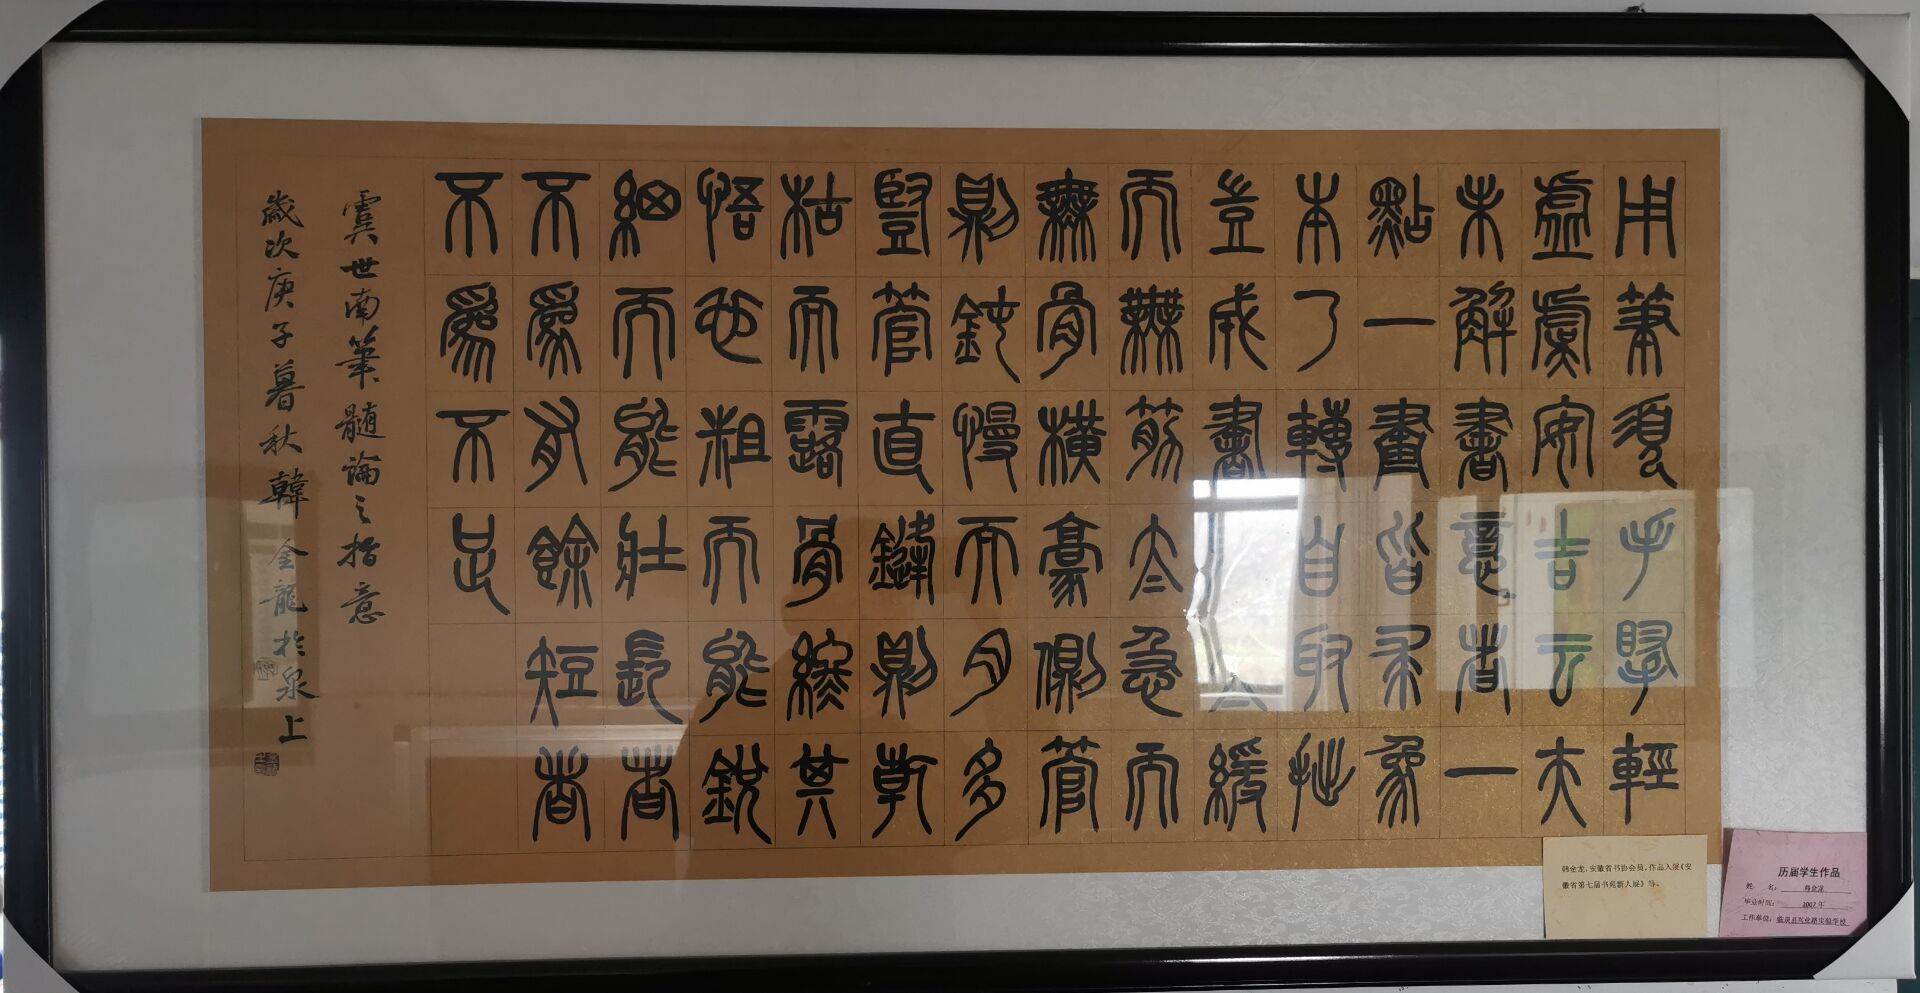 用筆須手腕輕
虛虞安吉云夫
未解書意者一
點一畫皆求象
本乃轉自取拙
豈成書太緩
而無筋太急而
無骨橫豪側管
則鈍慢而肉多
豎管直鏠則乾
枯而露骨終其
悟也粗而能銳
細而能壯長者
不爲有餘短者
不爲不足
虞世南筆髓論之指意
歲次庚子暮秋韓金龍於泉上
韩金龙,安徽省书协会员,作品入展《安
徽省第七届书苑新人展》等。
历届学生作品
姓 名: 韩金龙
毕业时间: 2007年
工作单位: 临泉县兴业路实验学校